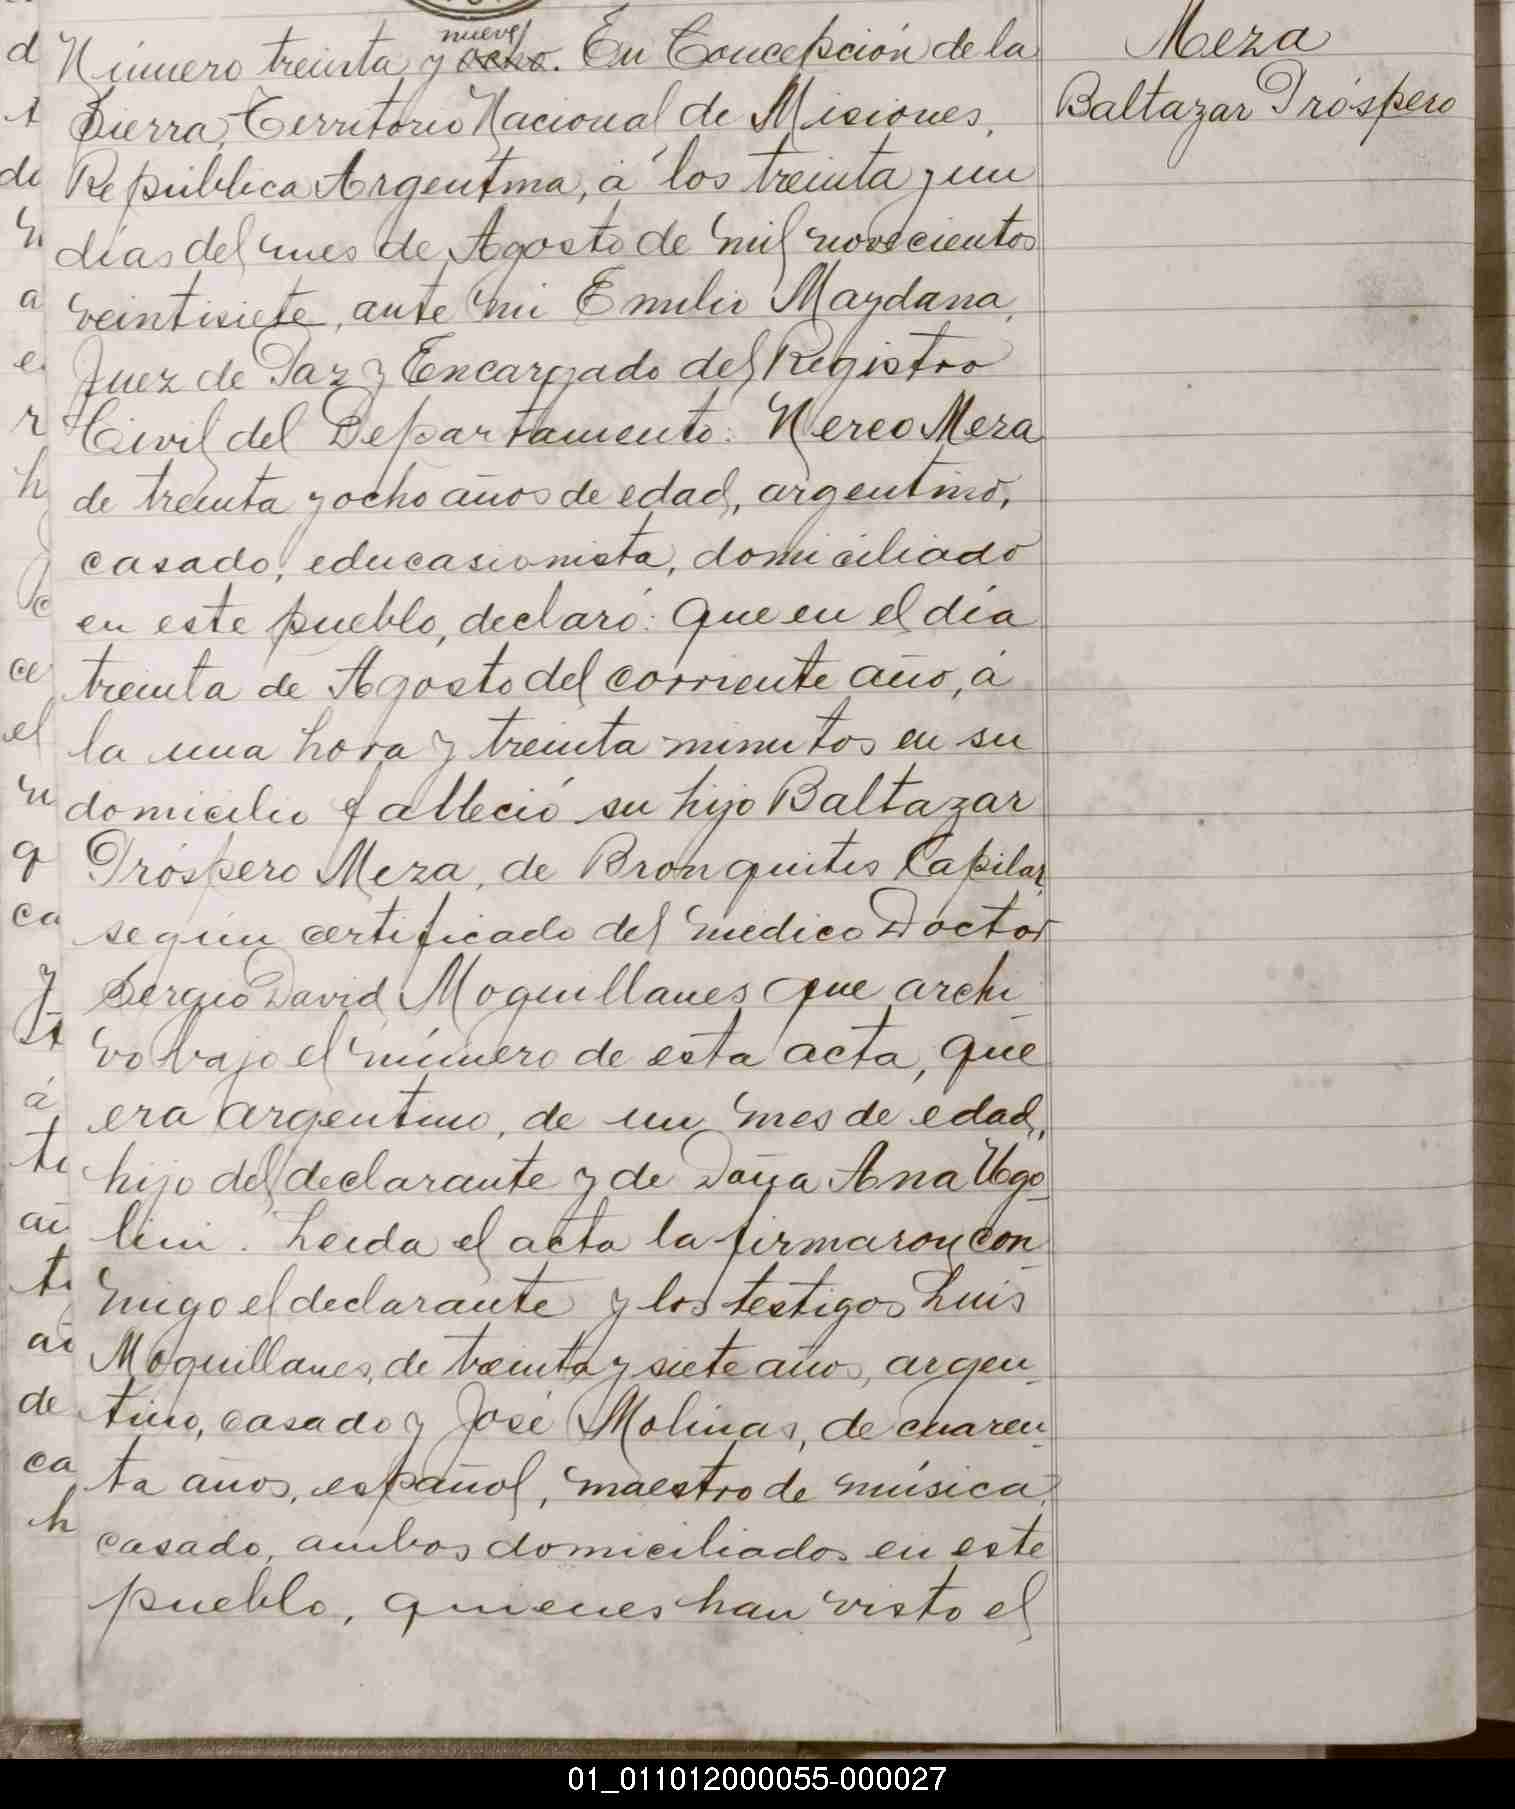 Meza
Baltazar Próspero
nueve
Número treinta y ocho. En Concepción de la
Sierra, Territorio Nacional de Misiones,
República Argentina, á los treinta y un
días del mes de Agosto de mil novecientos
veintisiete, ante mi Emilio Maydana,
Juez de Paz y Encargado del Registro
Civil del Departamento: Nereo Meza
de treinta y ocho años de edad, argentino,
casado, educasionista, domiciliado
en este pueblo, declaró: Que en el día
treinta de Agosto del corriente año, á
la una hora y treinta minutos en su
domicilio falleció su hijo Baltazar
Próspero Meza, de Bronquites Capilar,
según certificado del médico Doctor
Sergio David Moquillanes que archi-
vo bajo el número de esta acta, que
era argentino, de un mes de edad,
hijo del declarante y de Doña Ana Ugo-
lini. Leida el acta la firmaron con-
migo el declarante y los testigos Luis
Moquillanes, de treinta y siete años, argen-
tino, casado y José Molinas, de cuaren-
ta años, español, maestro de música,
casado, ambos domiciliados en este
pueblo, quienes han visto el
01_011012000055-000027